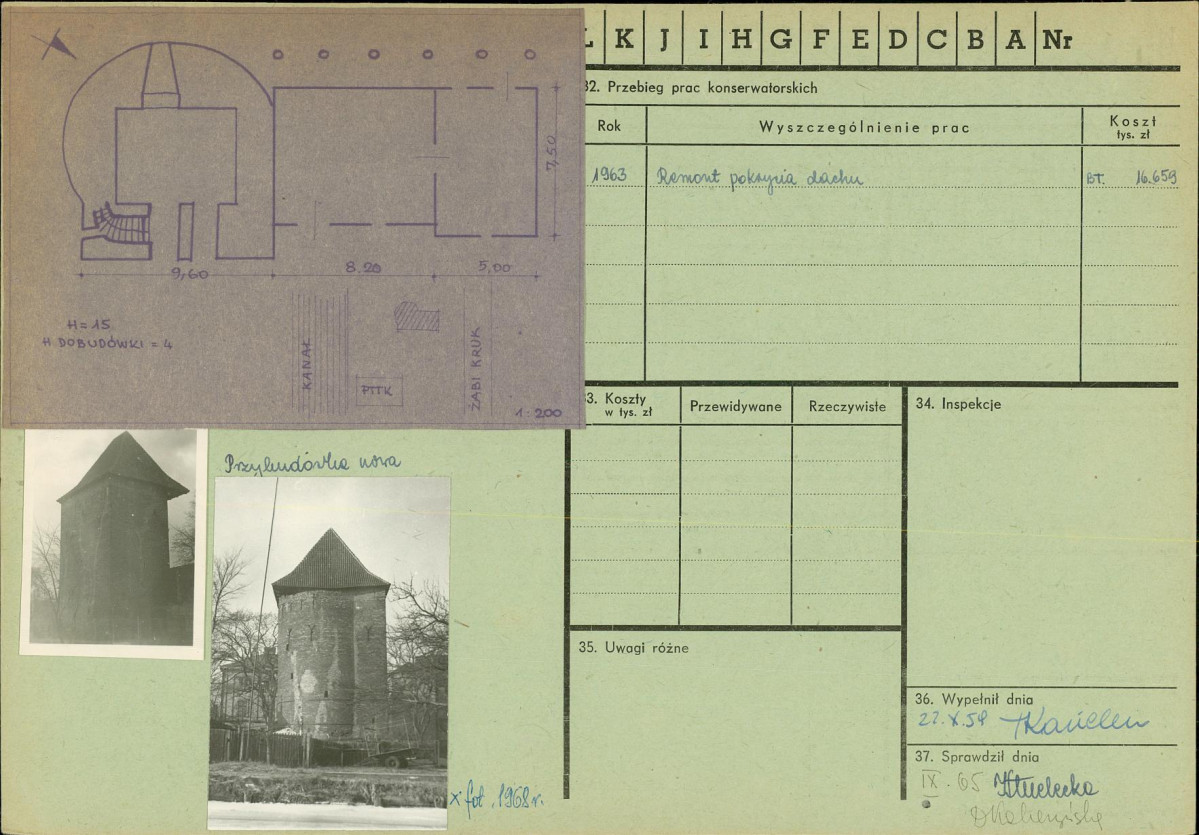 K J I H G F E D C B A Nr
32. Przebieg prac konserwatorskich
Rok
Wyszczególnienie prac
Koszt
tys. zł
1963
Remont pokrycia dachu
BT. 16.659
7,50
9,60
8.20
5,00
H = 15
H DOBUDÓWKI = 4
KANAŁ
PTTK
ŻABI KRUK
1:200
33. Koszty
w tys. zł
Przewidywane
Rzeczywiste
34. Inspekcje
Przybudówka nowa
x fot. 1968 r.
35. Uwagi różne
36. Wypełnił dnia
37. Sprawdził dnia
IX. 65